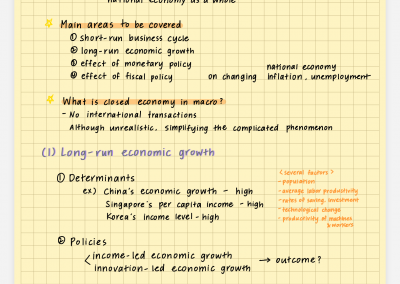 national economy as a whole
Main areas to be covered
① short-run business cycle
② long-run economic growth
③ effect of monetary policy
④ effect of fiscal policy on changing national economy inflation, unemployment
What is closed economy in macro?
- No international transactions
Although unrealistic, simplifying the complicated phenomenon
(1) Long-run economic growth
① Determinants
ex) China's economic growth - high
Singapore's per capita income - high
Korea's income level - high
(several factors?)
- population
- average labor productivity
- rates of saving, investment
- technological change
- productivity of machines & workers
② Policies
income-led economic growth
innovation-led economic growth
→ outcome?